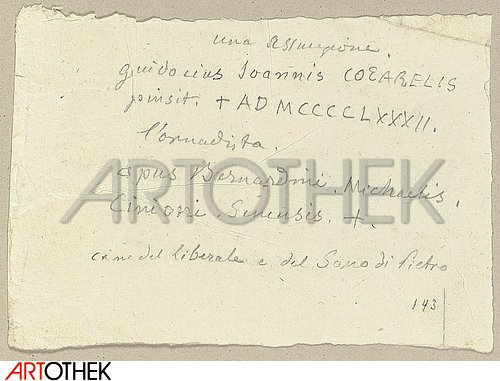 una assunzione.
guidocius Ioannis COZARELIS
pinsit. + AD MCCCCLXXXII.
l'ornadista.
opus Bernardini. Michaelis.
Cincioni. Senensis. +
come del Liberale e del Sano di Pietro
143
ARTOTHEK
ARTOTHEK